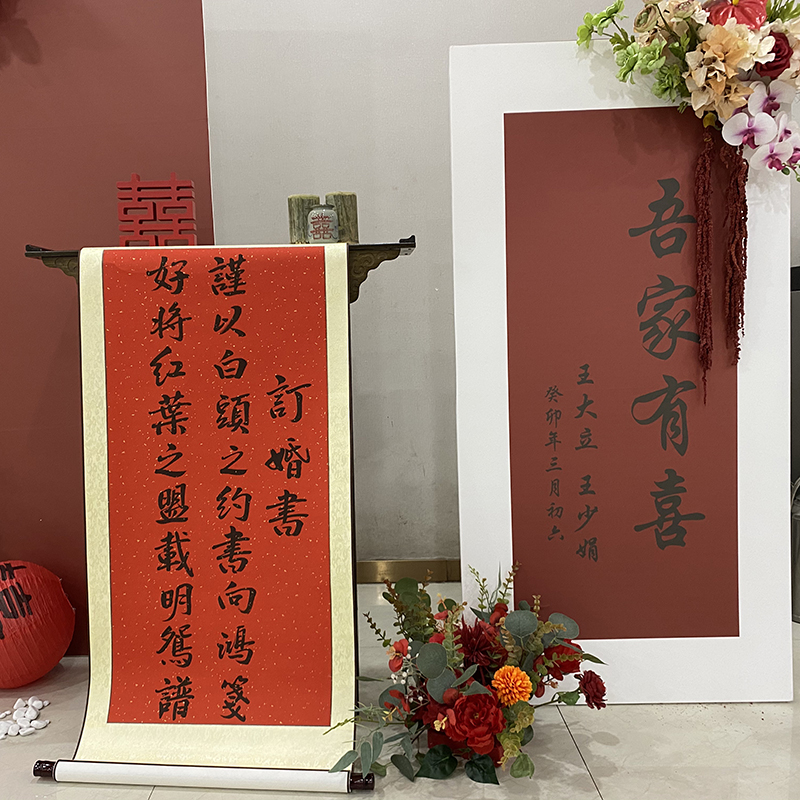 吾家有喜
王大立 王少娟
癸卯年三月初六
訂婚書
謹以白頭之約書向鴻箋
好將紅葉之盟載明鴛譜
囍
囍